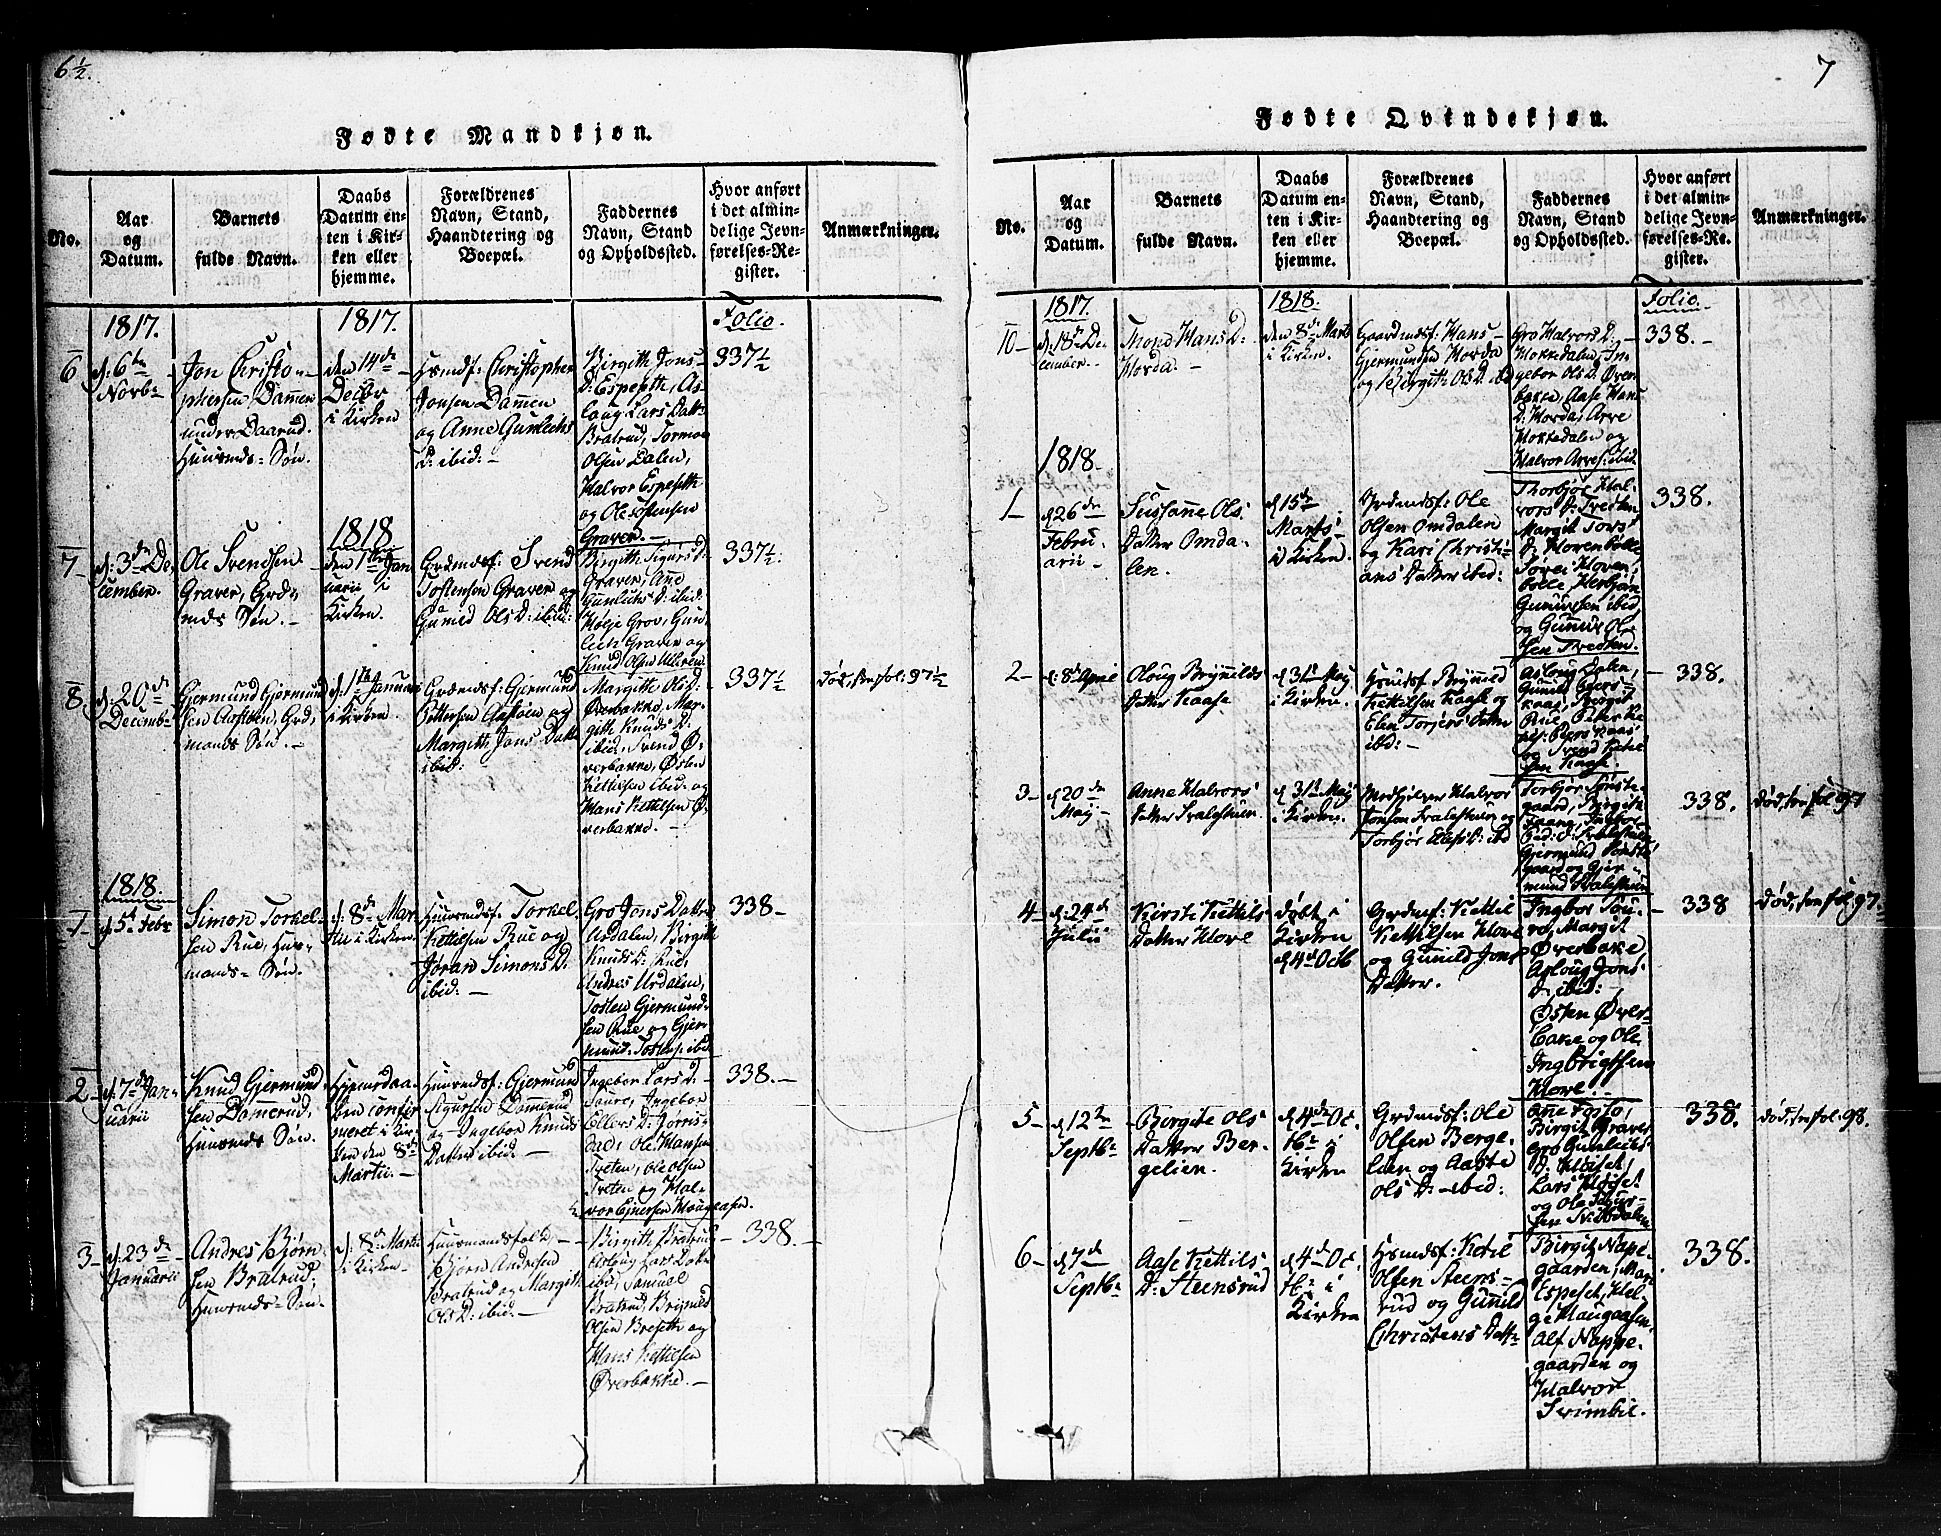 6½.
Fødte Mandkjøn.
No.
Aar
og
Datum.
Barnets
fulde Navn.
Daabs
Datum en-
ten i Kir-
ken eller
hjemme.
Forældrenes
Navn, Stand,
Haandtering og
Boepæl.
Faddernes
Navn, Stand
og Opholdssted.
Hvor anført
i det almin-
delige Jevn-
førelses-Re-
gister.
Anmærkninger.
1817.
1817.
Folio.
6
d: 6te
Novbr
Jon Christo-
phersen Dammen
under Daarud.
Huusmds= Søn.
den 14de
Decbr
i Kirken
Husmdsf: Christopher
Jonsen Dammen
og Anne Gunlechs
D: ibid: -
Birgith Jons-
D: Espeseth, As-
loug Lars Datt:
Bratrud, Tormo
Olsen Dalen,
Halvor Espeseth
og Ole Tostensen
Graver. -
337½
7
d: 3de De-
cember.
Ole Svendsen
Graver, Grd-
mds Søn. -
1818
den 1ste Jan
uarii i
Kirken.
Grdmdsf: Svend
Tostensen Graver og
Gunild Ols D: ibid:
Birgith Sigurs D:
Graver, Ane
Gunlechs D: ibid:
Helje Grov, Gun-
lech Graver og
Knud Olsen Ulleren
337½.
8
d: 20de
Decembr
Gjermund Gjermund
sen Aasteen, Grd-
mands Søn. -
d: 1ste Januar
i Kirken.
Grdmdsf: Gjermund
Pettersen Aasteen og
Margith Jons Datt:
ibid:
Margitte Ols D:
Øverbakke, Mar-
gitte Knuds D:
ibid:, Svend Ø-
verbakke, Østen
Kettilsen ibid: og
Hans Kettilsen Ø-
verbakke. -
337½
død, see fol: 97½
1818.
1
d: 5t Febr
Simon Torkel-
sen Rue, Huus-
mands= Søn.
d: 8de Mar-
tii i Kirken.
Huusmdsf: Torkel
Kettilsen Rue og
Jøran Simons D:
ibid: -
Gro Jons Datter
Aasdalen, Birgith
Knuds D: Rue,
Andres Urdalen,
Tosten Gjermund-
sen Rue og Gjer-
mund: Tostens: ibid
338 -
2
d: 7de Jan-
uarii
Knud Gjermund-
sen Dømerud,
Huusmds Søn.
Hjemedaa-
ben confir-
meret i Kir-
ken den 8de
Martii. -
Huusmdsf: Gjermund
Sigursen Dømmerud
og Ingebor Knuds
Datter ibid: -
Ingebor Lars D: -
Ellers D: Jørris-
dad, Ole Hansen
Treten, Ole Olsen
Treten og Hal-
vor Ejnersen Haugaasen.
338. -
3
d: 23de
Januarii
Andres Bjørn-
sen Bratrud,
Huusmds= Søn.
d: 8de Martii
i Kirken -
Huusmandsfolk: -
Bjørn Andresen
Bratrud og Margith
Ols D: ibid: -
Birgith Bratrud
Asloug Lars Datter
ibid, Samuel
Bratrud, Brynild
Olsen Breseth og
Hans Kettilsen
Øverbakke. -
338. -
7
Fødte Qvindekjøn.
No.
Aar
og
Datum.
Barnets
fulde Navn.
Daabs
Datum en-
ten i Kir-
ken eller
hjemme.
Forældrenes
Navn, Stand,
Haandtering og
Boepæl.
Faddernes
Navn, Stand
og Opholdssted.
Hvor anført
i det almin-
delige Jevn-
førelses-Re-
gister.
Anmærkninger.
1817.
1818.
Folio.
10
d: 18de De-
cember. -
Hans D:
Horda. -
den 8de Marts
i Kirken.
Gaardmdsf: Hans
Gjermunden Horda
og Birgith Ols D: ibid
Gro Halvors D:
Hokkedalen, In-
gebor Ols D: Øver-
bakke, Aase Hans
D: Horda, Arve
Hokkedalen og
Halvor Arves: ibid
338. -
1818.
1
d 26de
Febru-
arii -
Sussanne Ols-
Datter Omda-
len.
d 15de
Marts
i Kirken.
Grdmdsf: Ole
Olsen Omdalen
og Kari Christi-
ans Datter ibid:
Thorbjør Hal-
vors D: Tresten
Margit Tors
D: Hovenbolle
Tovei Hoven-
bolle, Herbjøn
Gunuvsen ibid
og Gunnuv Ole
sen Tresten.
338.
2
d: 8de April
Oloug Brynilds
Datter Kaase.
d 31te Maj
i Kirken.
Husmdsf: Brynild
Kettilsen Kaase og
Elen Torjers Datter
ibd: -
Asloug Dalen,
Gunild Bjers-
kaas, Bergit
Rue, Peter Ke
og Svend Ketel
sen Kaase.
338.
3
d 20de
Maj -
Anne Halvors
Datter Svalestuen.
d 31te Maj
i Kirken.
Halvor
Jonsen Svalestuen og
Torbjør D: ibd
Torbjør Tønste-
gaard, Birgith
D: Svalestuen
Gjermund Tønste-
gaard og Gjer-
mund Svalestuen
338.
død, see fol 97
4
d: 24de
Julii
Kirsti Kettils
Datter Hove
døbt i
Kirken
d 4de Octb
Grdmf: Kettil
Kettilsen Hove
og Gunild Jons
Datter.
Ingbor Tou-
rd, Margit
Øverbake
Asloug Jons
D: ibid:
Østen Øver-
bake og Ole
Ingbrigtsen
Hove.
338
død, see fol 97.
5
d 12te
Septbr
Birgite Ols
Datter Ber-
gelien.
d 4de Oc
tbr i
Kirken
Grdmdsf: Ole
Olsen Berge-
lien og Aaste
Ols D: ibid:
Ane Foslo,
Birgit Graver
Gro Gunleiks
D: Kløiset,
Lars Kløiset
og Ole Sigur-
338.
død, see fol: 98.
6
d 7de
Septbr
Aase Kettils
D: Steensrud
d 4de Oc
tbr i
Kirken
Husmdsf: Ketil
Olsen Steens-
rud og Gunild
Christens Dattr
Birgit Nape-
gaarden, Mari
Espeset, Hel-
ge Haugaasen
Alf Nappe-
gaarden og
Halvor
Svimbil.
338.